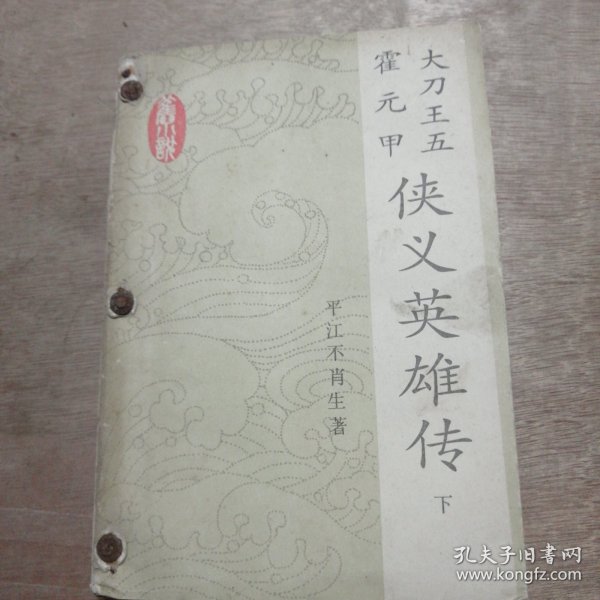 大刀王五
霍元甲
侠义英雄传
下
平江不肖生著
旧小说
孔夫子旧书网
www.kongfz.com